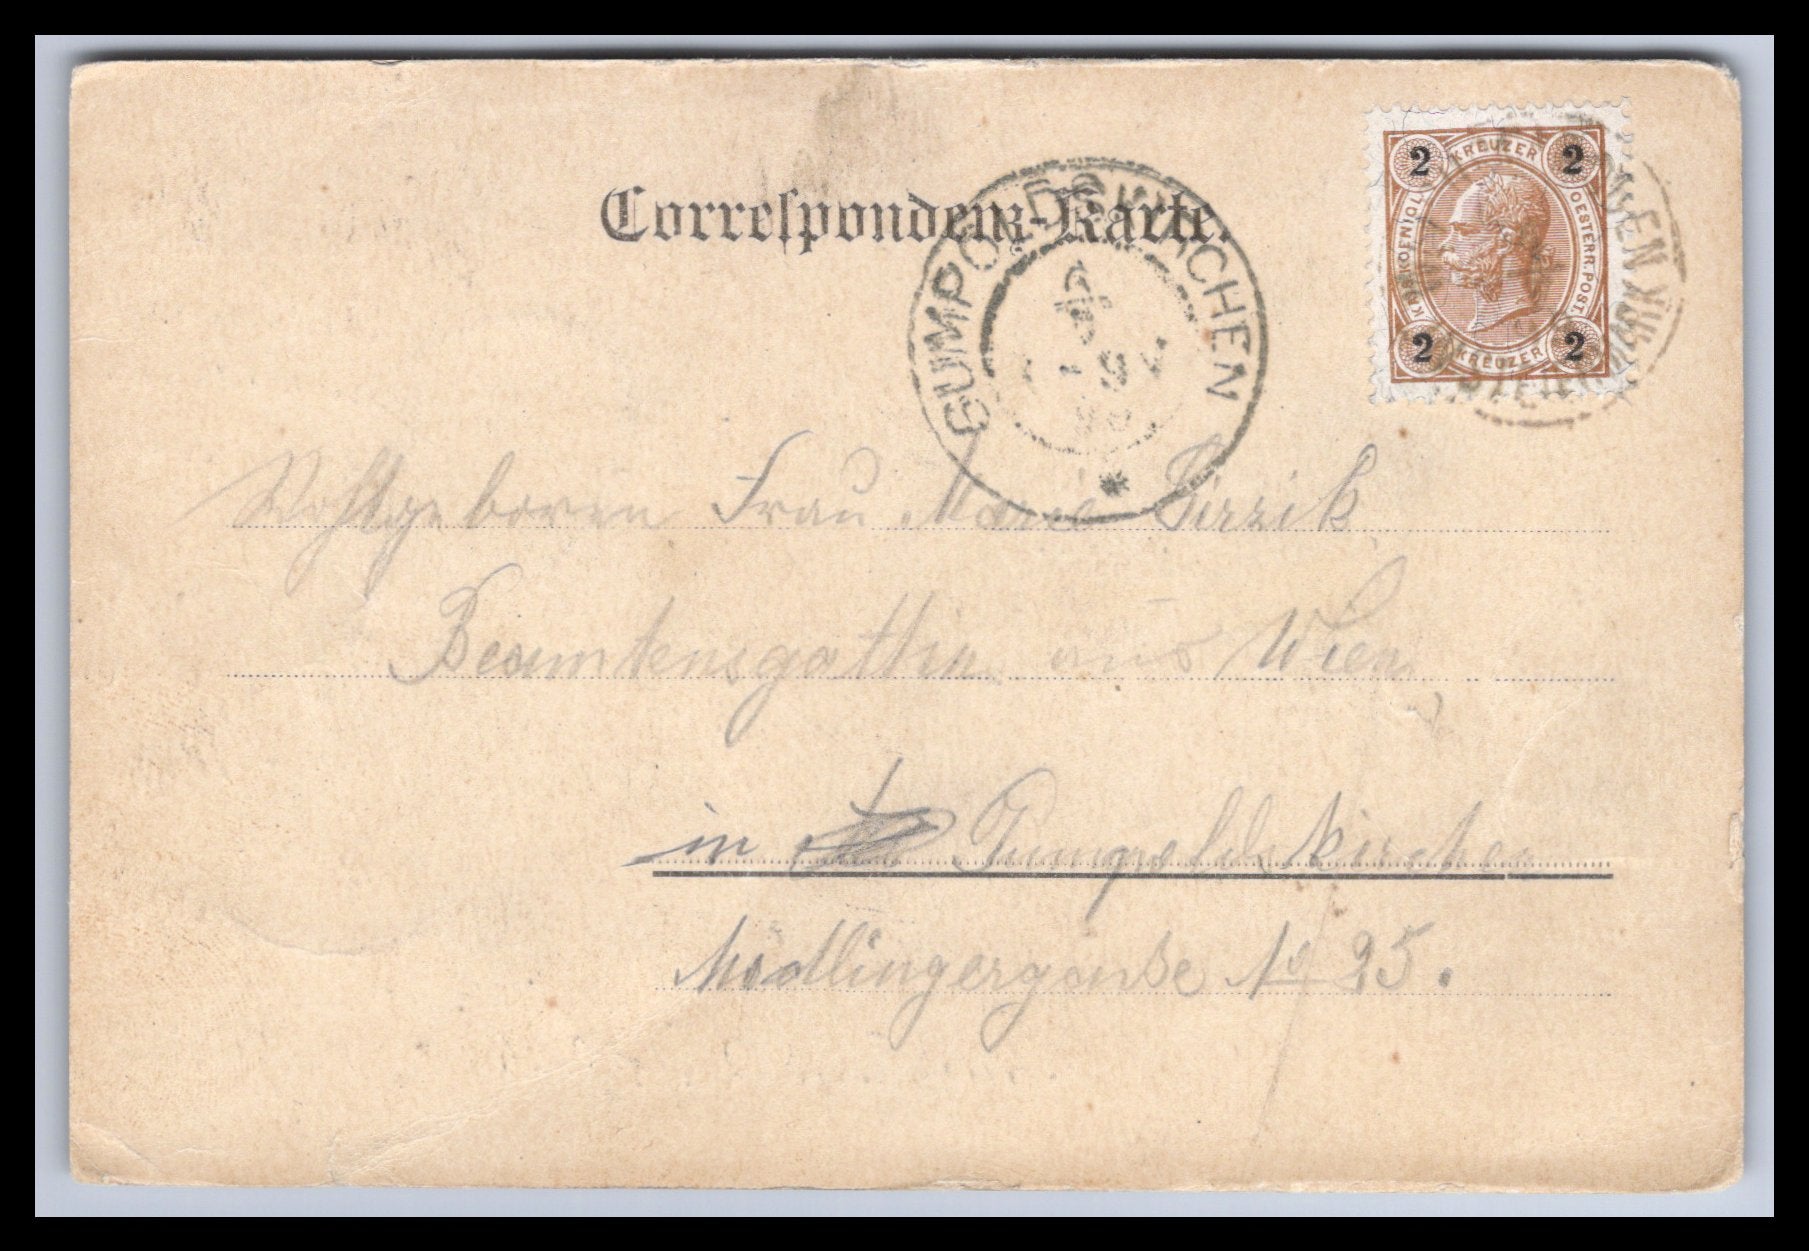 Correspondenz-Karte.
2 KREUZER 2
KAIS. KOENIGL. OESTERR. POST.
2 KREUZER 2
GUMPOLDSKIRCHEN
98
STEIERMARK
Wohlgeboren Frau Marie
Beamtensgattin aus Wien
in Gumpoldskirchen
Mödlingergasse No 25.